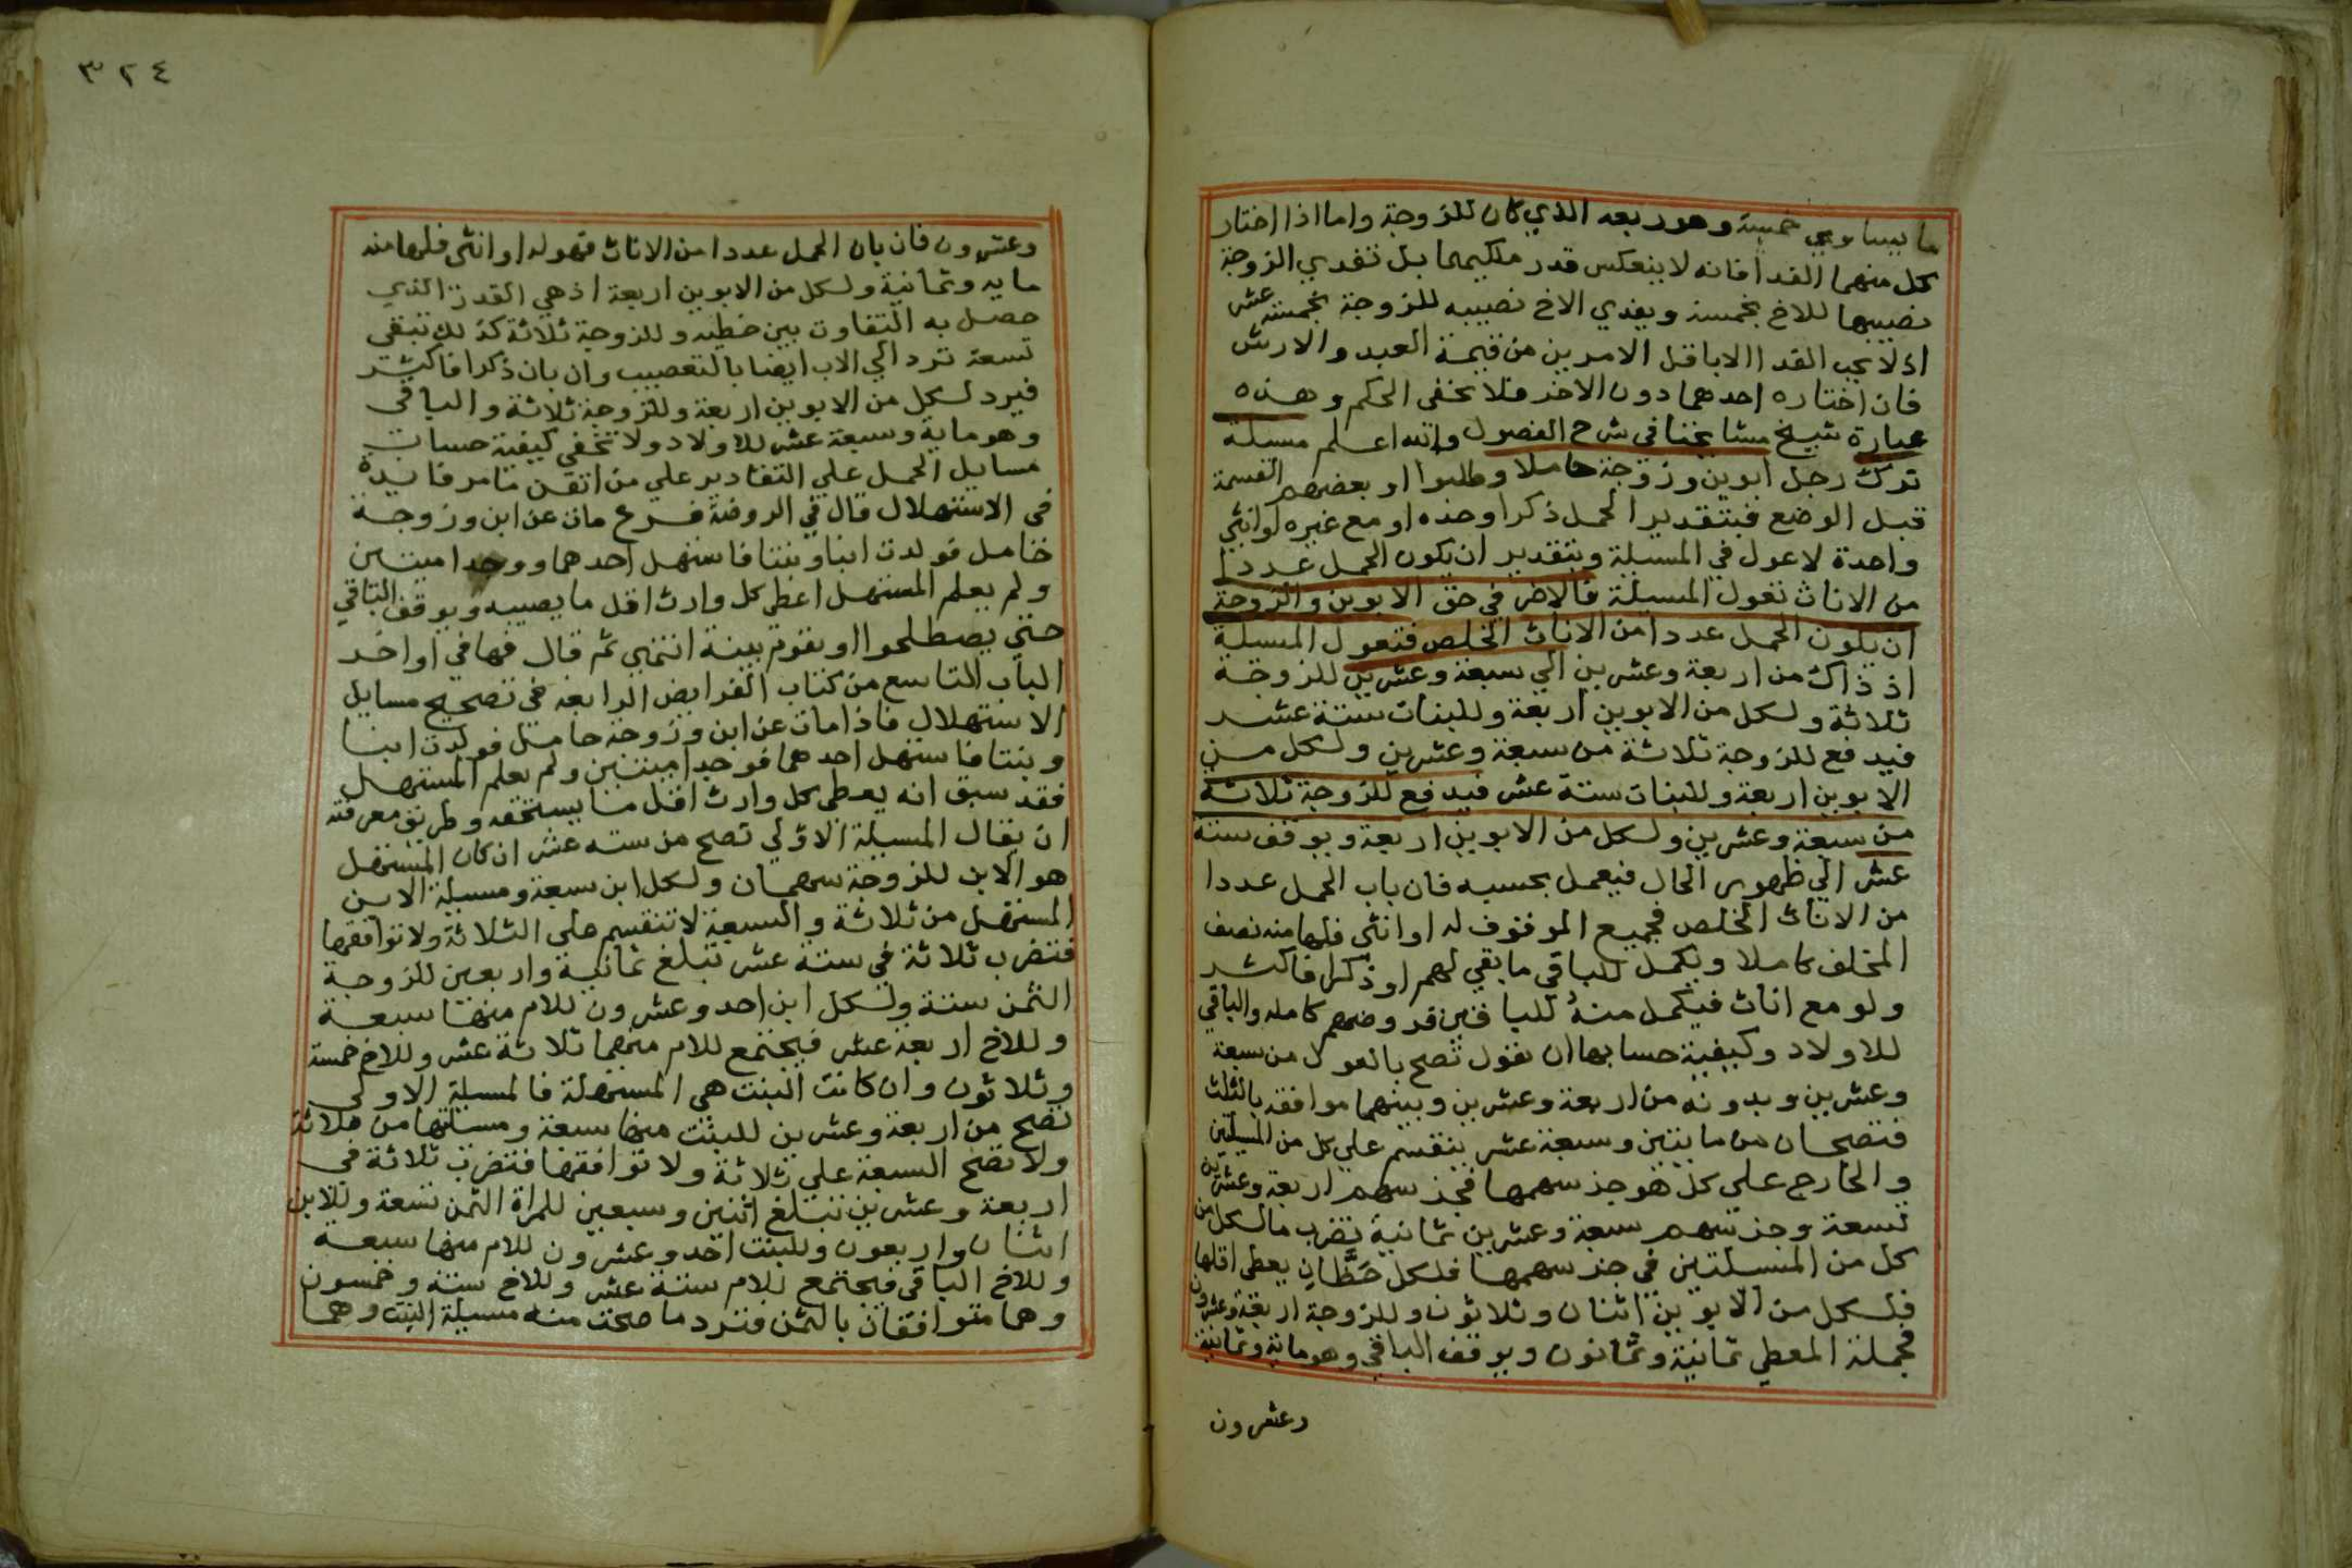 ما يساوي خمسة وهو ربعه الذي كان للزوجة واما اذا اختار
كل منهما الفدا فانه لا ينعكس قدر ملكيهما بل تفدي الزوجة
نصيبها للاخ بخمسة ويفدي الاخ نصيبه للزوجة بخمسة عشر
اذ لا يجب الفدا الا باقل الامرين من قيمة العبد والارش
فان اختاره احدهما دون الاخر فلا يخفى الحكم وهذه
عبارة شيخ مشايخنا في شرح الفصول والله اعلم مسيلة
ترك رجل ابوين وزوجة حاملا وطلبوا او بعضهم القسمة
قبل الوضع فبتقدير الحمل ذكرا وحده او مع غيره او انثي
واحدة لا عول في المسيلة وبتقدير ان يكون الحمل عددا
من الاناث تعول المسيلة فالاضر في حق الابوين والزوجة
ان يكون الحمل عددا من الاناث الخلص فتعول المسيلة
اذ ذاك من اربعة وعشرين الي سبعة وعشرين للزوجة
ثلاثة ولكل من الابوين اربعة وللبنات ستة عشر
فيدفع للزوجة ثلاثة من سبعة وعشرين ولكل من
الابوين اربعة وللبنات ستة عشر فيدفع للزوجة ثلاثة
من سبعة وعشرين ولكل من الابوين اربعة ويوقف ستة
عشر الي ظهور الحال فيعمل بحسبه فان بان الحمل عددا
من الاناث الخلص فجميع الموقوف له او انثى فلها منه نصف
المخلف كاملا ويكمل للباقي ما بقي لهم او ذكرا فاكثر
ولو مع اناث فيكمل منه للباقين فروضهم كاملة والباقي
للاولاد وكيفية حسابها ان نقول تصح بالعول من سبعة
وعشرين وبدونه من اربعة وعشرين وبينهما موافقة بالثلث
فتصحان من مايتين وستة عشر ينقسم علي كل من المسيلتين
والخارج علي كل هو جز سهمها فجز سهم اربعة وعشرين
تسعة وجز سهم سبعة وعشرين ثمانية تضرب ما لكل من
كل من المسيلتين في جز سهمها فلكل حظان يعطى اقلها
فلكل من الابوين اثنان وثلاثون وللزوجة اربعة وعشرون
فجملة المعطي ثمانية وثمانون ويوقف الباقي وهو ماية وثمانية
وعشرون
٣٢٤
وعشرون فان بان الحمل عددا من الاناث فهو له او انثى فلها منه
مايه وثمانية ولكل من الابوين اربعة اذ هي القدر الذي
حصل به التفاوت بين حظيه وللزوجة ثلاثة كذلك تبقى
تسعة ترد الي الاب ايضا بالتعصيب وان بان ذكرا فاكثر
فيرد لكل من الابوين اربعة وللزوجة ثلاثة والباقي
وهو ماية وسبعة عشر للاولاد ولا تخفي كيفية حساب
مسايل الحمل علي التقادير علي من اتقن ما مر فايدة
في الاستهلال قال في الروضة فرع مات عن ابن وزوجة
حامل فولدت ابنا وبنتا فاستهل احدهما ووجدا ميتين
ولم يعلم المستهل اعطي كل وارث اقل ما يصيبه ويوقف الباقي
حتي يصطلحوا او تقوم بينة انتهي ثم قال فيها في اواخر
الباب التاسع من كتاب الفرايض الرابعة في تصحيح مسايل
الاستهلال فاذا مات عن ابن وزوجة حامل فولدت ابنا
وبنتا فاستهل احدهما فوجدا ميتين ولم يعلم المستهل
فقد سبق انه يعطى كل وارث اقل ما يستحقه وطريق معرفته
ان يقال المسيلة الاولي تصح من سته عشر ان كان المستهل
هو الابن للزوجة سهمان ولكل ابن سبعة ومسيلة الابن
المستهل من ثلاثة والسبعة لا تنقسم على الثلاثة ولا توافقها
فتضرب ثلاثة في ستة عشر تبلغ ثمانية واربعين للزوجة
الثمن ستة ولكل ابن احد وعشرون للام منها سبعة
وللاخ اربعة عشر فيجتمع للام منهما ثلاثة عشر وللاخ خمسة
وثلاثون وان كانت البنت هي المستهلة فالمسيلة الاولى
تصح من اربعة وعشرين للبنت منها سبعة ومسالتها من ثلاثة
ولا تصح السبعة علي ثلاثة ولا توافقها فتضرب ثلاثة في
اربعة وعشرين تبلغ اثنين وسبعين للمراة الثمن تسعة وللابن
اثنان واربعون وللبنت احد وعشرون للام منها سبعة
وللاخ الباقي فيجتمع للام ستة عشر وللاخ ستة وخمسون
وهما متوافقان بالثمن فترد ما صحت منه مسيلة البنت وهما